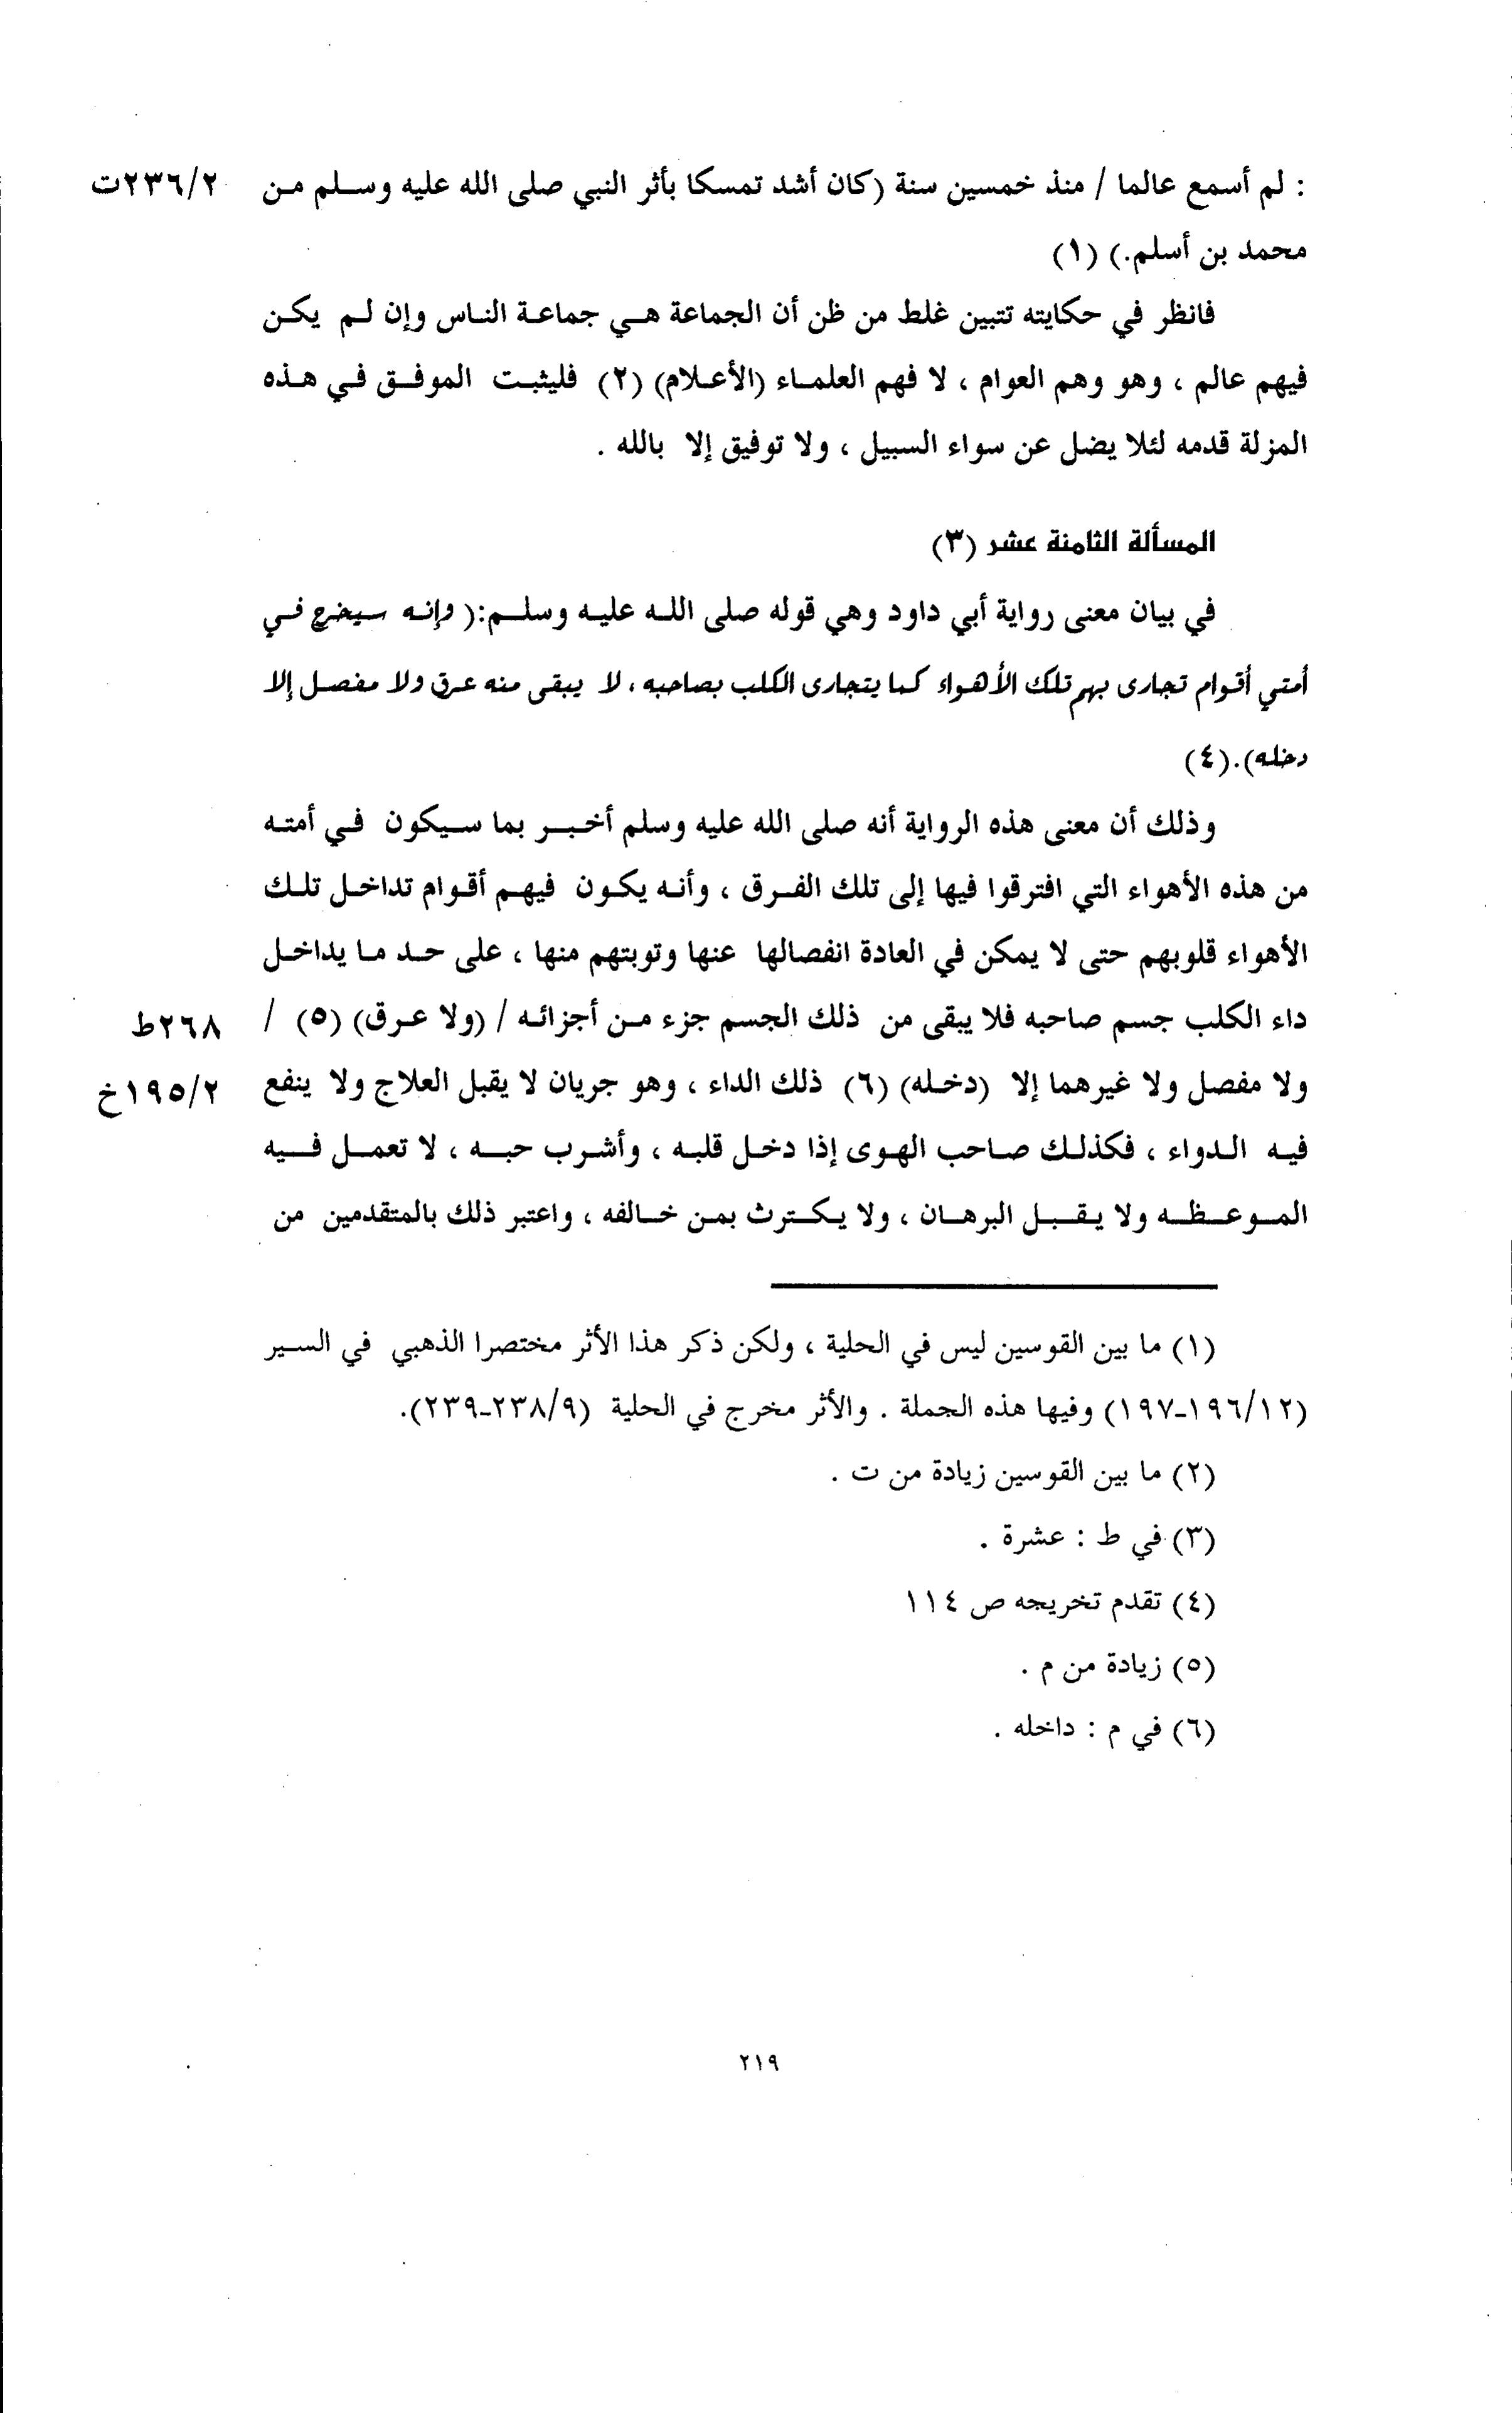 : لم أسمع عالما / منذ خمسين سنة (كان أشد تمسكا بأثر النبي صلى الله عليه وسلم من ٢٣٦/٢ت
محمد بن أسلم.) (١)
فانظر في حكايته تتبين غلط من ظن أن الجماعة هي جماعة الناس وإن لم يكن
فيهم عالم ، وهو وهم العوام ، لا فهم العلماء (الأعلام) (٢) فليثبت الموفق في هذه
المزلة قدمه لئلا يضل عن سواء السبيل ، ولا توفيق إلا بالله .
المسألة الثامنة عشر (٣)
في بيان معنى رواية أبي داود وهي قوله صلى الله عليه وسلم:( وإنه سيخرج في
أمتي أقوام تجارى بهم تلك الأهواء كما يتجارى الكلب بصاحبه ، لا يبقى منه عرق ولا مفصل إلا
دخله).(٤)
وذلك أن معنى هذه الرواية أنه صلى الله عليه وسلم أخبر بما سيكون في أمته
من هذه الأهواء التي افترقوا فيها إلى تلك الفرق ، وأنه يكون فيهم أقوام تداخل تلك
الأهواء قلوبهم حتى لا يمكن في العادة انفصالها عنها وتوبتهم منها ، على حد ما يداخل
داء الكلب جسم صاحبه فلا يبقى من ذلك الجسم جزء من أجزائه / (ولا عرق) (٥) / ٢٦٨ط
ولا مفصل ولا غيرهما إلا (دخله) (٦) ذلك الداء ، وهو جريان لا يقبل العلاج ولا ينفع ١٩٥/٢خ
فيه الدواء ، فكذلك صاحب الهوى إذا دخل قلبه ، وأشرب حبه ، لا تعمل فيه
الموعظه ولا يقبل البرهان ، ولا يكترث بمن خالفه ، واعتبر ذلك بالمتقدمين من
(١) ما بين القوسين ليس في الحلية ، ولكن ذكر هذا الأثر مختصرا الذهبي في السير
(١٩٦/١٢-١٩٧) وفيها هذه الجملة . والأثر مخرج في الحلية (٢٣٨/٩-٢٣٩).
(٢) ما بين القوسين زيادة من ت .
(٣) في ط : عشرة .
(٤) تقدم تخريجه ص ١١٤
(٥) زيادة من م .
(٦) في م : داخله .
٢١٩